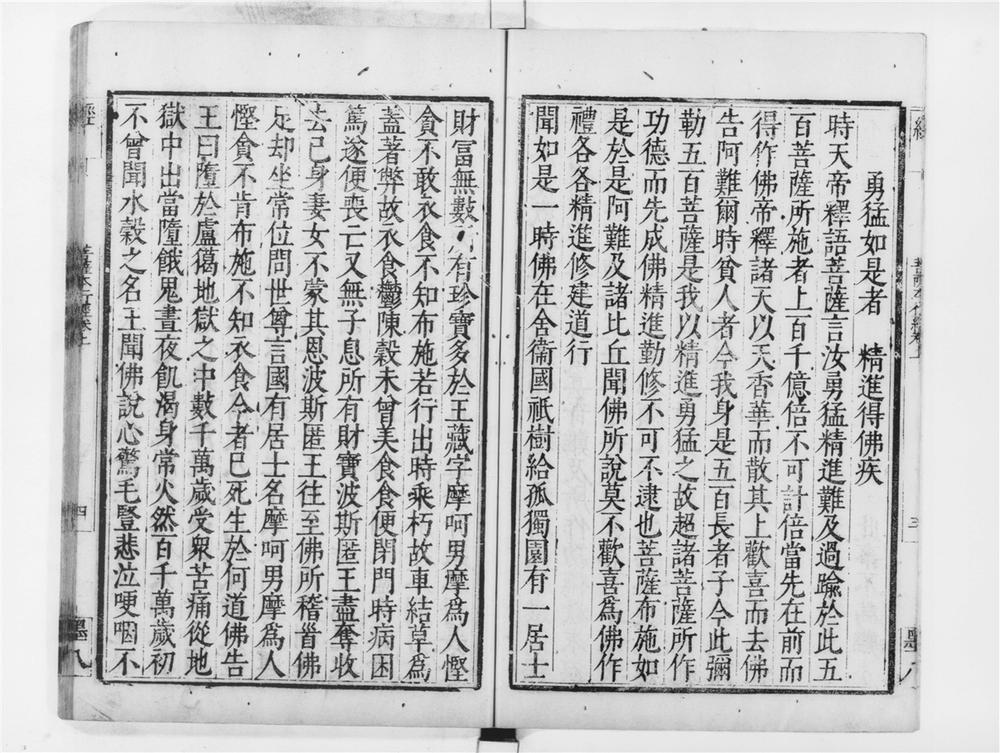 勇猛如是者　精進得佛疾
時天帝釋語菩薩言汝勇猛精進難及過踰於此五
百菩薩所施者上百千億倍不可計倍當先在前而
得作佛帝釋諸天以天香華而散其上歡喜而去佛
告阿難爾時貧人者今我身是五百長者子今此彌
勒五百菩薩是我以精進勇猛之故超諸菩薩所作
功德而先成佛精進勤修不可不逮也菩薩布施如
是於是阿難及諸比丘聞佛所說莫不歡喜為佛作
禮各各精進修建道行
聞如是一時佛在舍衞國祇樹給孤獨園有一居士
三
墨八
財富無數所有珍寶多於王藏字摩呵男摩為人慳
貪不敢衣食不知布施若行出時乘朽故車結草為
蓋著弊故衣食鬱陳穀未曾美食食便閉門時病困
篤遂便喪亡又無子息所有財寶波斯匿王盡奪收
去己身妻女不蒙其恩波斯匿王往至佛所稽首佛
足却坐常位問世尊言國有居士名摩呵男摩為人
慳貪不肯布施不知衣食今者已死生於何道佛告
王曰墮於盧獦地獄之中數千萬歲受衆苦痛從地
獄中出當墮餓鬼晝夜飢渴身常火然百千萬歲初
不曾聞水穀之名王聞佛說心驚毛豎悲泣哽咽不
經
菩薩本行經卷上
四
墨八